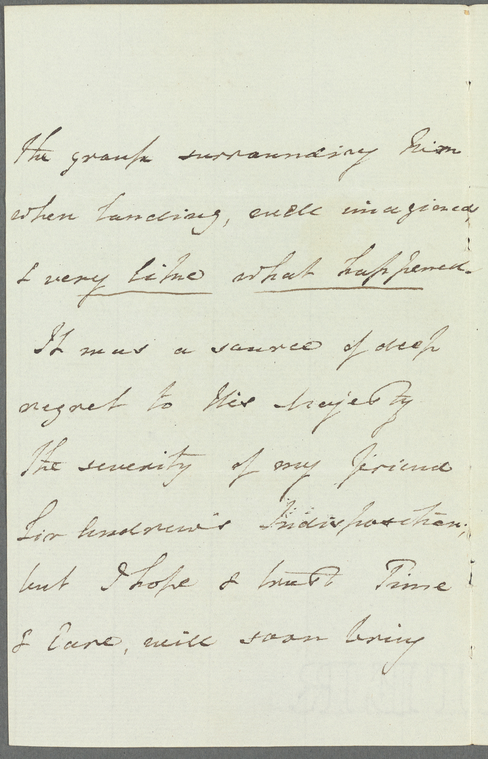 the group surrounding him
when landing, well imagined
& very like what happened.
It was a source of deep
regret to His Majesty
the severity of my friend
Sir Andrew's Indisposition;
but I hope & trust Time
& Care, will soon bring